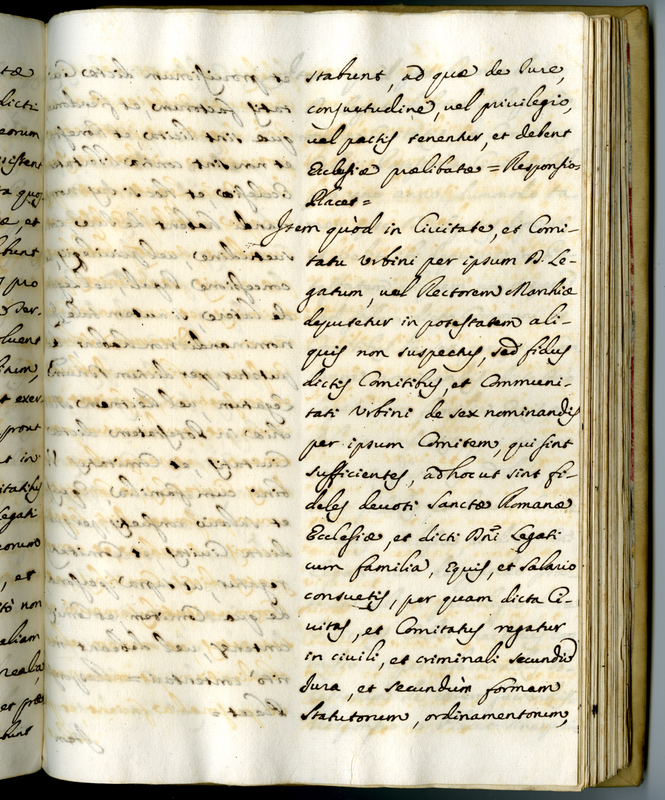 tæ
dicti
eorum
a quo,
æ, et
bunt
pro
Ser-
luent
et exer
prout
t in
itatis
Legati
eorum
, et
tò non
aliam
realia,
et præ
bunt
stabunt, ad quæ de Iure,
consuetudine, vel privilegio,
vel pactis tenentur, et debent
Ecclesiæ prælibatæ = Responsio =
Placet =
Item quòd in Civitate, et Comi-
tatu Urbini per ipsum D. Le-
gatum, vel Rectorem Marchiæ
deputetur in potestatem ali-
quis non suspectus, sed fidus
dictis Comitibus, et Communi-
tati Urbini de sex nominandis
per ipsum Comitem, qui sint
sufficientes, ad hoc ut sint fi-
deles devoti Sanctæ Romanæ
Ecclesiæ, et dicti Dnī Legati
cum familia, Equis, et salario
consuetis, per quam dicta Ci-
vitas, et Comitatus regatur
in civili, et criminali secundũ
Iura, et secundùm formam
Statutorum, ordinamentorum,